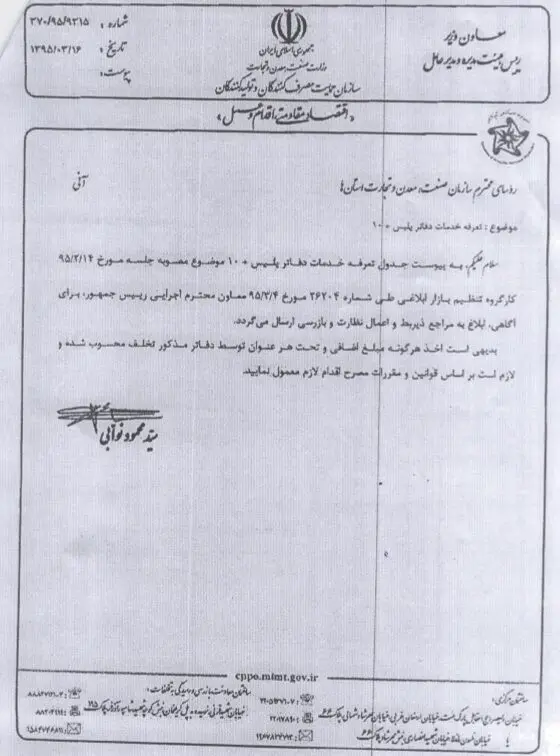 معاون وزیر
رئیس هیئت مدیره و مدیر عامل
جمهوری اسلامی ایران
وزارت صنعت، معدن و تجارت
سازمان حمایت مصرف کنندگان و تولیدکنندگان
شماره : ۳۷۰/۹۵/۹۲۱۵
تاریخ : ۱۳۹۵/۰۳/۱۶
پیوست :
«اقتصاد مقاومتی، اقدام و عمل»
آنی
رؤسای محترم سازمان صنعت، معدن و تجارت استان ها
موضوع : تعرفه خدمات دفاتر پلیس + ۱۰
سلام علیکم، به پیوست جدول تعرفه خدمات دفاتر پلیس + ۱۰ موضوع مصوبه جلسه مورخ ۹۵/۲/۱۴
کارگروه تنظیم بازار ابلاغی طی شماره ۲۶۲۰۴ مورخ ۹۵/۳/۴ معاون محترم اجرایی رییس جمهور، برای
آگاهی، ابلاغ به مراجع ذیربط و اعمال نظارت و بازرسی ارسال می‌گردد.
بدیهی است اخذ هرگونه مبلغ اضافی و تحت هر عنوان توسط دفاتر مذکور تخلف محسوب شده و
لازم است بر اساس قوانین و مقررات مصرح اقدام لازم معمول نمایید.
سید محمود نوابی
cppo.mimt.gov.ir
ساختمان مرکزی :
ساختمان معاونت بازرسی و رسیدگی به تخلفات :